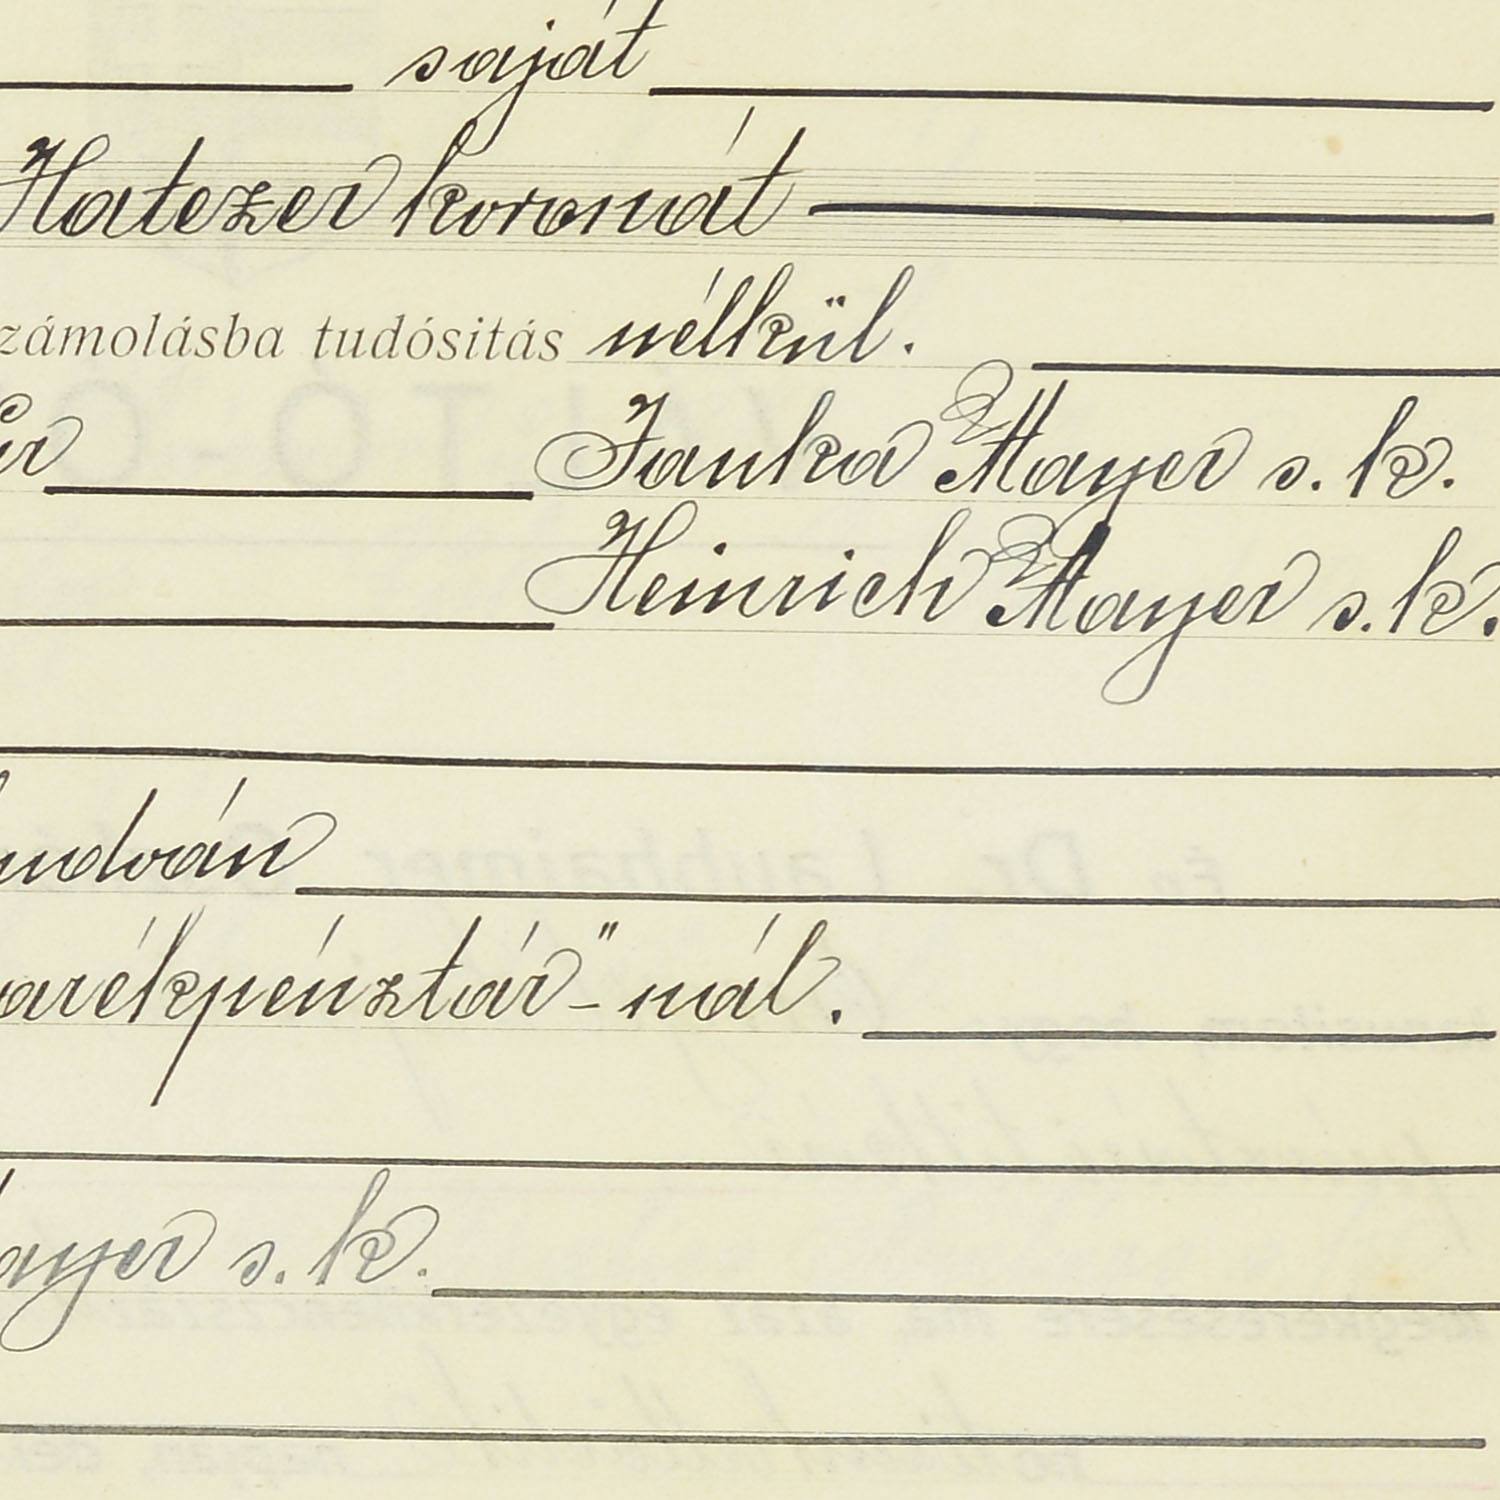 saját
Hatezer koronát
számolásba tudósitás nélkül.
er Janka Mayer s. k.
Heinrich Mayer s. k.
udván
arékpénztár"-nál.
ayer s. k.